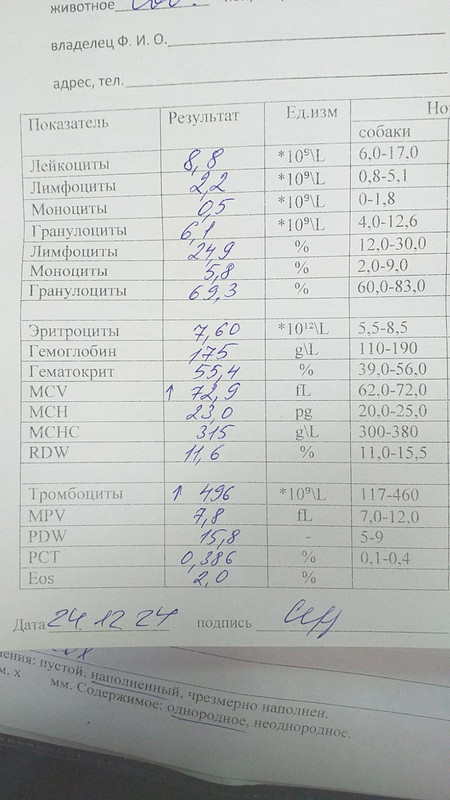 животное
владелец Ф. И. О.
адрес, тел.
Показатель Результат Ед.изм Но
собаки
Лейкоциты 8,8 *10⁹\L 6,0-17,0
Лимфоциты 2,2 *10⁹\L 0,8-5,1
Моноциты 0,5 *10⁹\L 0-1,8
Гранулоциты 6,1 *10⁹\L 4,0-12,6
Лимфоциты 24,9 % 12,0-30,0
Моноциты 5,8 % 2,0-9,0
Гранулоциты 69,3 % 60,0-83,0
Эритроциты 7,60 *10¹²\L 5,5-8,5
Гемоглобин 175 g\L 110-190
Гематокрит 55,4 % 39,0-56,0
MCV ↑ 72,9 fL 62,0-72,0
MCH 23,0 pg 20,0-25,0
MCHC 315 g\L 300-380
RDW 11,6 % 11,0-15,5
Тромбоциты ↑ 496 *10⁹\L 117-460
MPV 7,8 fL 7,0-12,0
PDW 15,8 - 5-9
PCT 0,386 % 0,1-0,4
Eos 2,0 %
Дата 24.12 24 подпись
нения: пустой, наполненный, чрезмерно наполнен.
м. х мм. Содержимое: однородное, неоднородное.